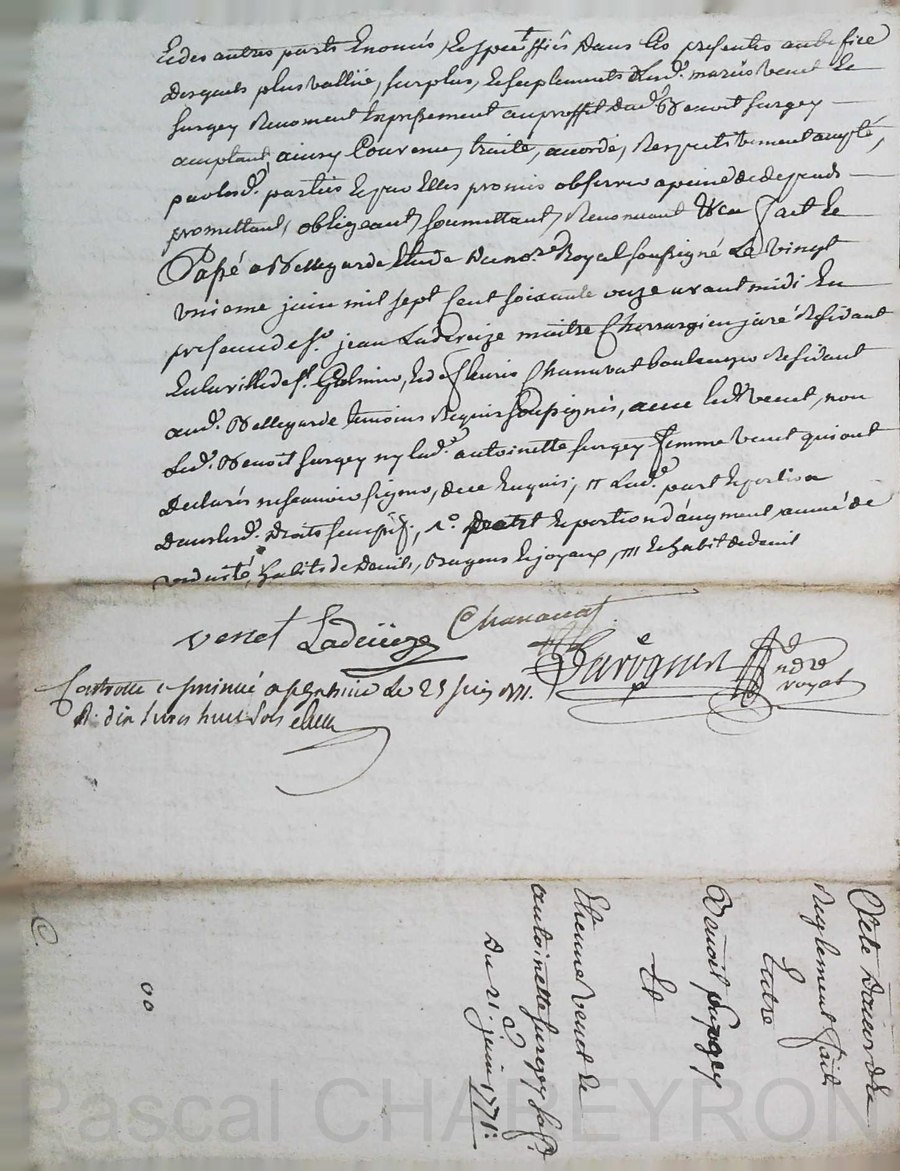 et des autres parts Enoncés, et specifiés Dans les presentes au befice
desquels plus vallüe, surplus, et suplements Lesd. mariés venet et
surgey Renoncent Expressement au proffit dud. Benoit surgey
acceptant, ainsy Convenu, traité, accordé, Respectivement accepté,
par lesd. parties Lequel Elles promis observer a peine de depends
promettant, obligeant, soumettant, Renonceant &ca fait et
Passé a Bellegarde Etude du no.re Royal soussigné Le vingt
unieme juin mil sept Cent soixante onze avant midi En
presence de sr. jean Ladeveize maitre Chirurgien juré Residant
En la ville de st. Galmier, et de fleurie Chanavat boulanger Residant
aud. Bellegarde temoins Requis soussignés, avec led. venet, non
Led. Benoit surgey ny lad. antoinette surgey femme venet qui ont
Declarés ne scavoir signer, de ce Enquis, lad. part et portion
Dans lesd. Droits et portion d'augment année de
viduité, habits de Deuil, Bagues et joyaux, et habit de deuil
venet Ladeveize Chanavat
ndre royal
Controllé a le 25 juin 1771.
R. dix livres huit sols
Acte D'accord et
Reglement fait
Entre
Benoit surgey
Et
Etienne venet et
antoinette surgey sa f.
Du 21. juin 1771.
00
Pascal CHAREYRON